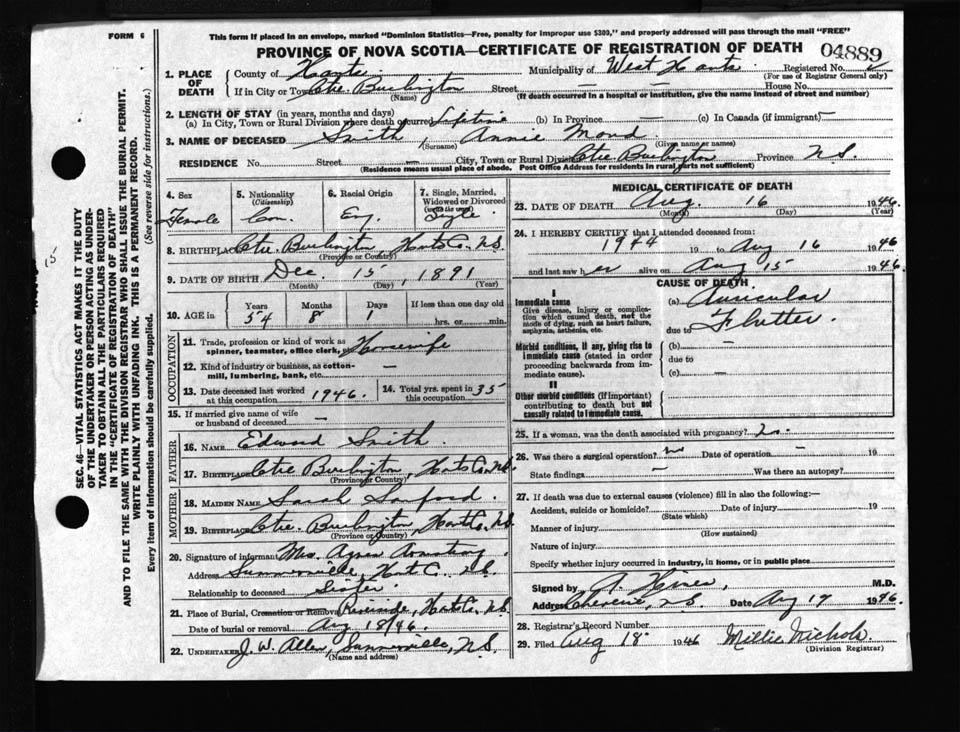 FORM 6
This form if placed in an envelope, marked "Dominion Statistics—Free, penalty for improper use $300," and properly addressed will pass through the mail "FREE"
PROVINCE OF NOVA SCOTIA—CERTIFICATE OF REGISTRATION OF DEATH
04889
SEC. 46—VITAL STATISTICS ACT MAKES IT THE DUTY
OF THE UNDERTAKER OR PERSON ACTING AS UNDER-
TAKER TO OBTAIN ALL THE PARTICULARS REQUIRED
IN THE "CERTIFICATE OF REGISTRATION OF DEATH"
AND TO FILE THE SAME WITH THE DIVISION REGISTRAR WHO SHALL ISSUE THE BURIAL PERMIT.
WRITE PLAINLY WITH UNFADING INK. THIS IS A PERMANENT RECORD.
Every item of information should be carefully supplied. (See reverse side for instructions.)
15
1. PLACE OF DEATH
County of Hants Municipality of West Hants Registered No.
(For use of Registrar General only)
If in City or Town Ctre. Burlington Street — House No. —
(Name) (If death occurred in a hospital or institution, give the name instead of street and number)
2. LENGTH OF STAY (in years, months and days)
(a) In City, Town or Rural Division where death occurred Lifetime (b) In Province — (c) In Canada (if immigrant) —
3. NAME OF DECEASED Smith Annie Maud
(Surname) (Given name or names)
RESIDENCE No. Street — City, Town or Rural Division Ctre Burlington Province N.S.
(Residence means usual place of abode. Post Office Address for residents in rural parts not sufficient)
4. Sex Female
5. Nationality (Citizenship) Can.
6. Racial Origin Eng.
7. Single, Married, Widowed or Divorced (write the word) Single
8. BIRTHPLACE Ctre. Burlington, Hants Co. N.S.
(Province or Country)
9. DATE OF BIRTH Dec. 15, 1891
(Month) (Day) (Year)
10. AGE in Years Months Days If less than one day old
54 8 1 hrs. or min.
OCCUPATION
11. Trade, profession or kind of work as spinner, teamster, office clerk, Housewife
12. Kind of industry or business, as cotton-mill, lumbering, bank, etc. —
13. Date deceased last worked at this occupation 1946.
14. Total yrs. spent in this occupation 35
15. If married give name of wife or husband of deceased —
FATHER
16. NAME Edward Smith.
17. BIRTHPLACE Ctre Burlington, Hants Co. N.S.
(Province or Country)
MOTHER
18. MAIDEN NAME Sarah Sanford.
19. BIRTHPLACE Ctre. Burlington, Hants Co. N.S.
(Province or Country)
20. Signature of informant Mrs. Agnes Armstrong.
Address Summerville, Hants C. N.S.
Relationship to deceased Sister
21. Place of Burial, Cremation or Removal Riverside, Hants Co. N.S.
Date of burial or removal Aug 18/46.
22. UNDERTAKER J. W. Allen, Summerville, N.S.
(Name and address)
MEDICAL CERTIFICATE OF DEATH
23. DATE OF DEATH Aug. 16 1946.
(Month) (Day) (Year)
24. I HEREBY CERTIFY that I attended deceased from:
1944 19 to Aug 16 1946
and last saw her alive on Aug 15 1946.
CAUSE OF DEATH
I
Immediate cause
Give disease, injury or complication which caused death, not the mode of dying, such as heart failure, asphyxia, asthenia, etc.
(a) Auricular
due to Flutter.
Morbid conditions, if any, giving rise to immediate cause (stated in order proceeding backwards from immediate cause).
(b) —
due to
(c) —
II
Other morbid conditions (if important) contributing to death but not causally related to immediate cause.
25. If a woman, was the death associated with pregnancy? no.
26. Was there a surgical operation? no Date of operation —
State findings — Was there an autopsy? —
27. If death was due to external causes (violence) fill in also the following:—
Accident, suicide or homicide? Date of injury 19
(State which)
Manner of injury
(How sustained)
Nature of injury
Specify whether injury occurred in industry, in home, or in public place
Signed by M.D.
Address Cheverie, N.S. Date Aug 17 1946.
28. Registrar's Record Number
29. Filed Aug 18 1946 Millie Nichols.
(Division Registrar)